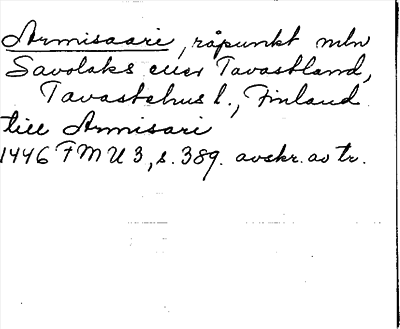 Armisaari, råpunkt mln
Savolaks och Tavastland,
Tavastehus l., Finland
till Armisari
1446 FMU 3, s. 389. avskr. av tr.